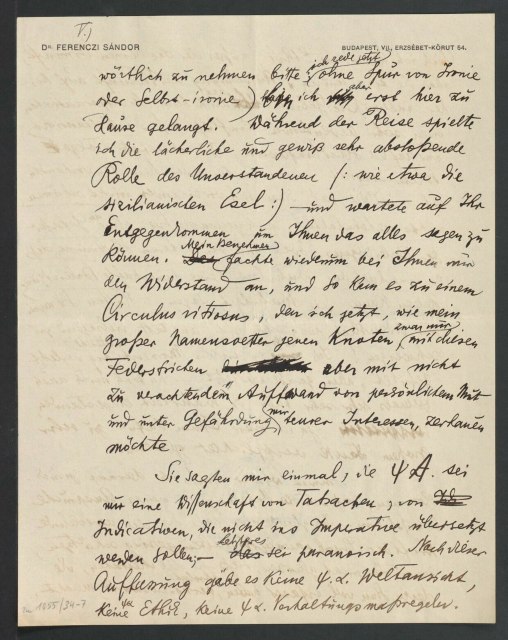 V.)
Dr. FERENCZI SÁNDOR
BUDAPEST, VII. ERZSÉBET-KÖRUT 54.
ich rede jetzt
wörtlich zu nehmen bitte, ohne Spur von Ironie
aber
oder Selbst-ironie) ich erst hier zu
Hause gelangt. Während der Reise spielte
ich die lächerliche und gewiß sehr abstoßende
Rolle des Unverstandenen (: wie etwa die
sizilianischen Esel :) — und wartete auf Ihr
Entgegenkommen um Ihnen das alles sagen zu
Mein Benehmen
können. fachte wiederum bei Ihnen nur
den Widerstand an, und so kam es zu einem
Circulus vitiosus, den ich jetzt, wie mein
großer Namensvetter jenen Knoten,
zwar nur
mit diesen
Federstrichen aber mit nicht
zu verachtendem Aufwand von persönlichem Mut
und unter Gefährdung mir teurer Interessen, zerhauen
möchte.
Sie sagten mir einmal, die ΨA. sei
nur eine Wissenschaft von Tatsachen, von
Indicativen, die nicht ins Imperative übersetzt
letzteres
werden sollen; — das sei paranoisch. Nach dieser
Auffassung gäbe es keine Ψ.α. Weltansicht,
keine Ψα Ethik, keine Ψα. Verhaltungsmaßregeln.
1055/34-7